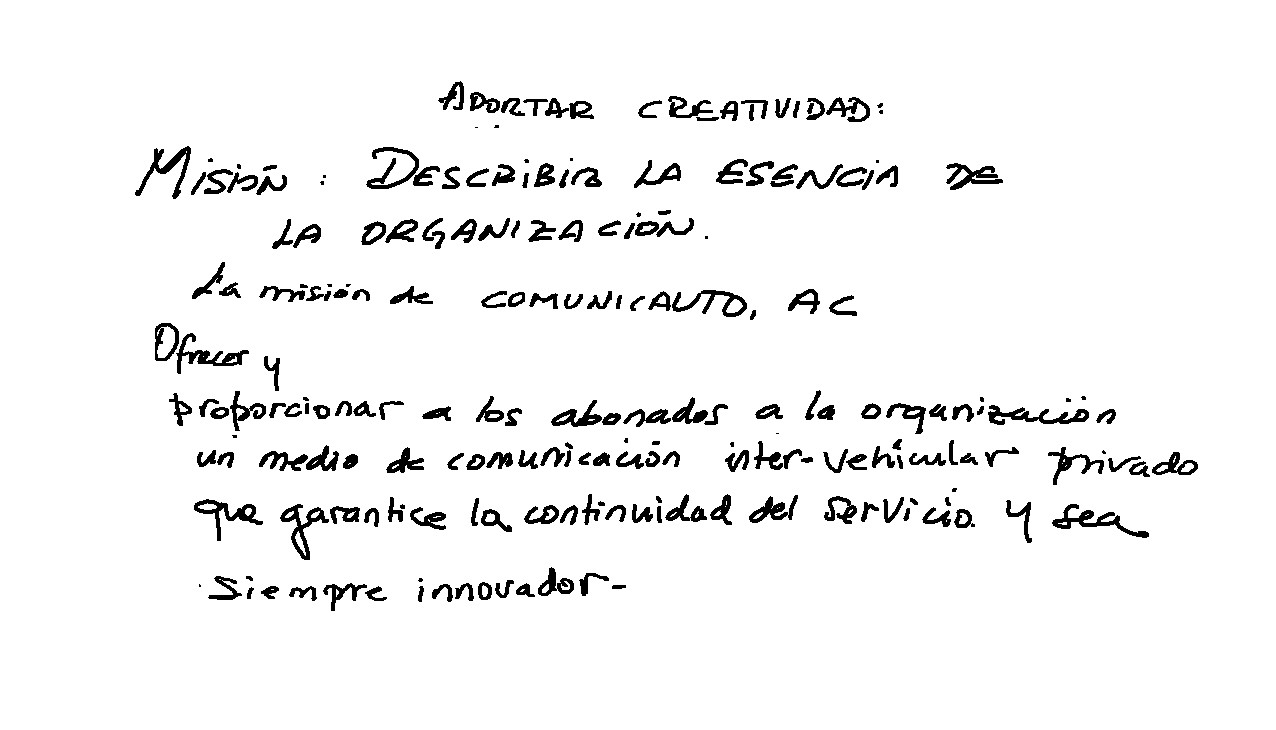 APORTAR CREATIVIDAD:
MISIÓN : DESCRIBIR LA ESENCIA DE
LA ORGANIZACIÓN.
La misión de COMUNICAUTO, AC
Ofrecer y
proporcionar a los abonados a la organización
un medio de comunicación inter-vehícular privado
que garantice la continuidad del servicio y sea
siempre innovador-